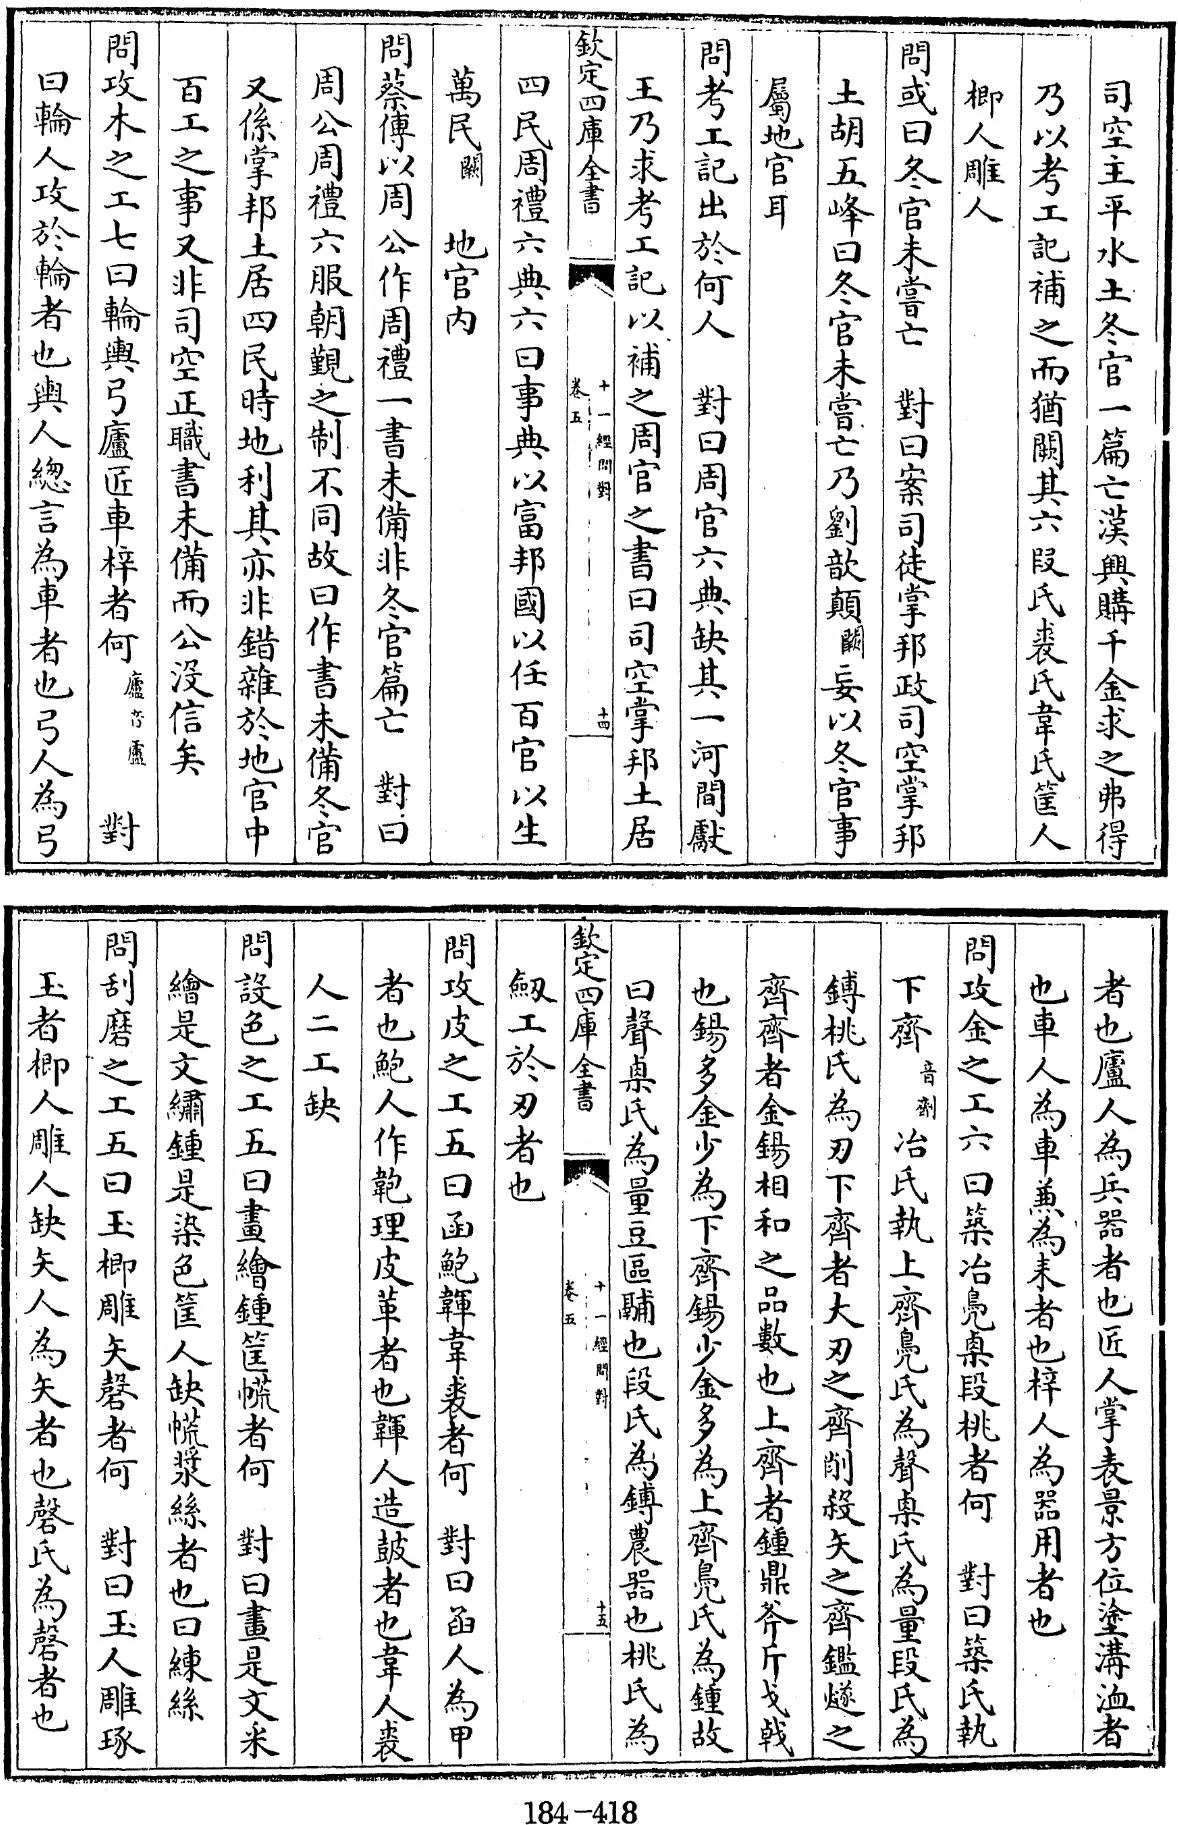 司空主平水土冬官一篇亡漢興購千金求之弗得
乃以考工記補之而猶闕其六段氏裘氏韋氏筐人
楖人雕人
問或曰冬官未嘗亡　對曰案司徒掌邦政司空掌邦
土胡五峰曰冬官未嘗亡乃劉歆顛闕妄以冬官事
屬地官耳
問考工記出於何人　對曰周官六典缺其一河間獻
王乃求考工記以補之周官之書曰司空掌邦土居
欽定四庫全書　十一經問對　卷五　十四
四民周禮六典六曰事典以富邦國以任百官以生
萬民闕　地官内
問蔡傳以周公作周禮一書未備非冬官篇亡　對曰
周公周禮六服朝覲之制不同故曰作書未備冬官
又係掌邦土居四民時地利其亦非錯雜於地官中
百工之事又非司空正職書未備而公沒信矣
問攻木之工七曰輪輿弓廬匠車梓者何廬音盧　對
曰輪人攻於輪者也輿人總言為車者也弓人為弓
者也廬人為兵器者也匠人掌表景方位塗溝洫者
也車人為車兼為耒者也梓人為器用者也
問攻金之工六曰築冶鳧㮚段桃者何　對曰築氏執
下齊音劑冶氏執上齊鳧氏為聲㮚氏為量段氏為
鎛桃氏為刃下齊者大刃之齊削殺矢之齊鑑燧之
齊齊者金錫相和之品數也上齊者鍾鼎斧斤戈戟
也錫多金少為下齊錫少金多為上齊鳧氏為鍾故
曰聲㮚氏為量豆區鬴也段氏為鎛農器也桃氏為
欽定四庫全書　十一經問對　卷五　十五
劔工於刃者也
問攻皮之工五曰函鮑韗韋裘者何　對曰函人為甲
者也鮑人作鞄理皮革者也韗人造鼓者也韋人裘
人二工缺
問設色之工五曰畫繪鍾筐㡛者何　對曰畫是文米
繪是文繡鍾是染色筐人缺㡛漿絲者也曰練絲
問刮磨之工五曰玉楖雕矢磬者何　對曰玉人雕琢
玉者楖人雕人缺矢人為矢者也磬氏為磬者也
184-418